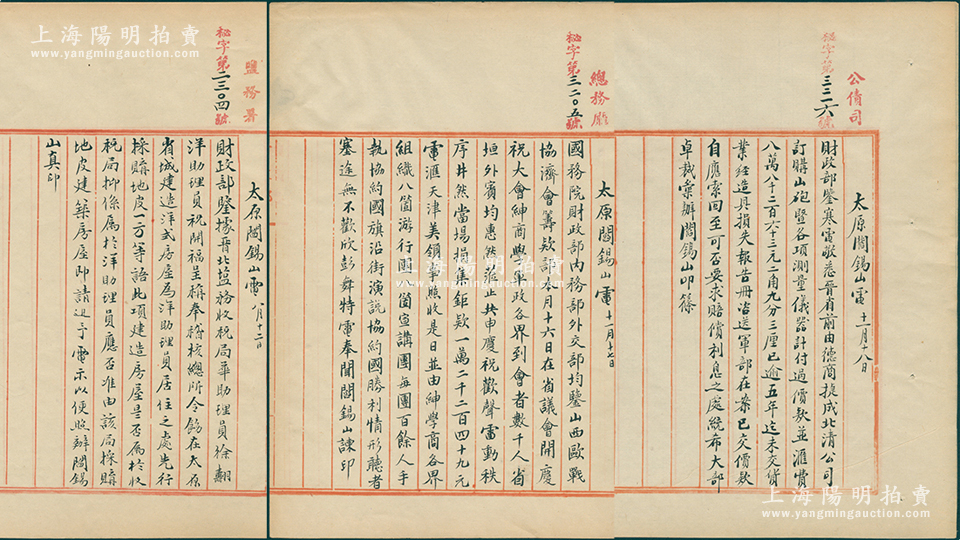 公債司
秘字第三三一六號
太原閻錫山電 十一月十八日
財政部鑒寒電敬悉晉省前由德商捷成北清公司
訂購山砲暨各項測量儀器計付過價款並滙費
八萬八千二百六十三元二角九分三厘已逾五年迄未交貨
業經造具損失報告冊咨送軍部在案已交價款
自應索回至可否要求賠償利息之處統希大部
卓裁彙辦閻錫山印篠
總務廳
秘字第三二○五號
太原閻錫山電 十一月十七日
國務院財政部內務部外交部均鑒山西歐戰
協濟會籌欵部本月十六日在省議會開慶
祝大會紳商學軍政各界到會者數千人省
垣外賓均惠然蒞止共申慶祝歡聲雷動秩
序井然當場捐集鉅欵一萬二千二百四十九元
電滙天津美領事照收是日並由紳學商各界
組織八箇游行團一箇宣講團每團百餘人手
執協約國旗沿街演說協約國勝利情形聽者
塞途無不歡欣彭舞特電奉聞閻錫山諫印
鹽務署
秘字第二三○四號
太原閻錫山電 八月十二日
財政部鑒據晉北鹽務收稅局華助理員徐翽
洋助理員祝開福呈稱奉稽核總所令飭在太原
省城建造洋式房屋為洋助理員居住之處先行
採購地皮一方等語此項建造房屋是否屬於收
稅局抑係屬於洋助理員應否准由該局採購
地皮建築房屋即請迅予電示以便照辦閻錫
山真印
上海陽明拍賣
www.yangmingauction.com
上海陽明拍賣
www.yangmingauction.com
上海陽明拍賣
www.yangmingauction.com